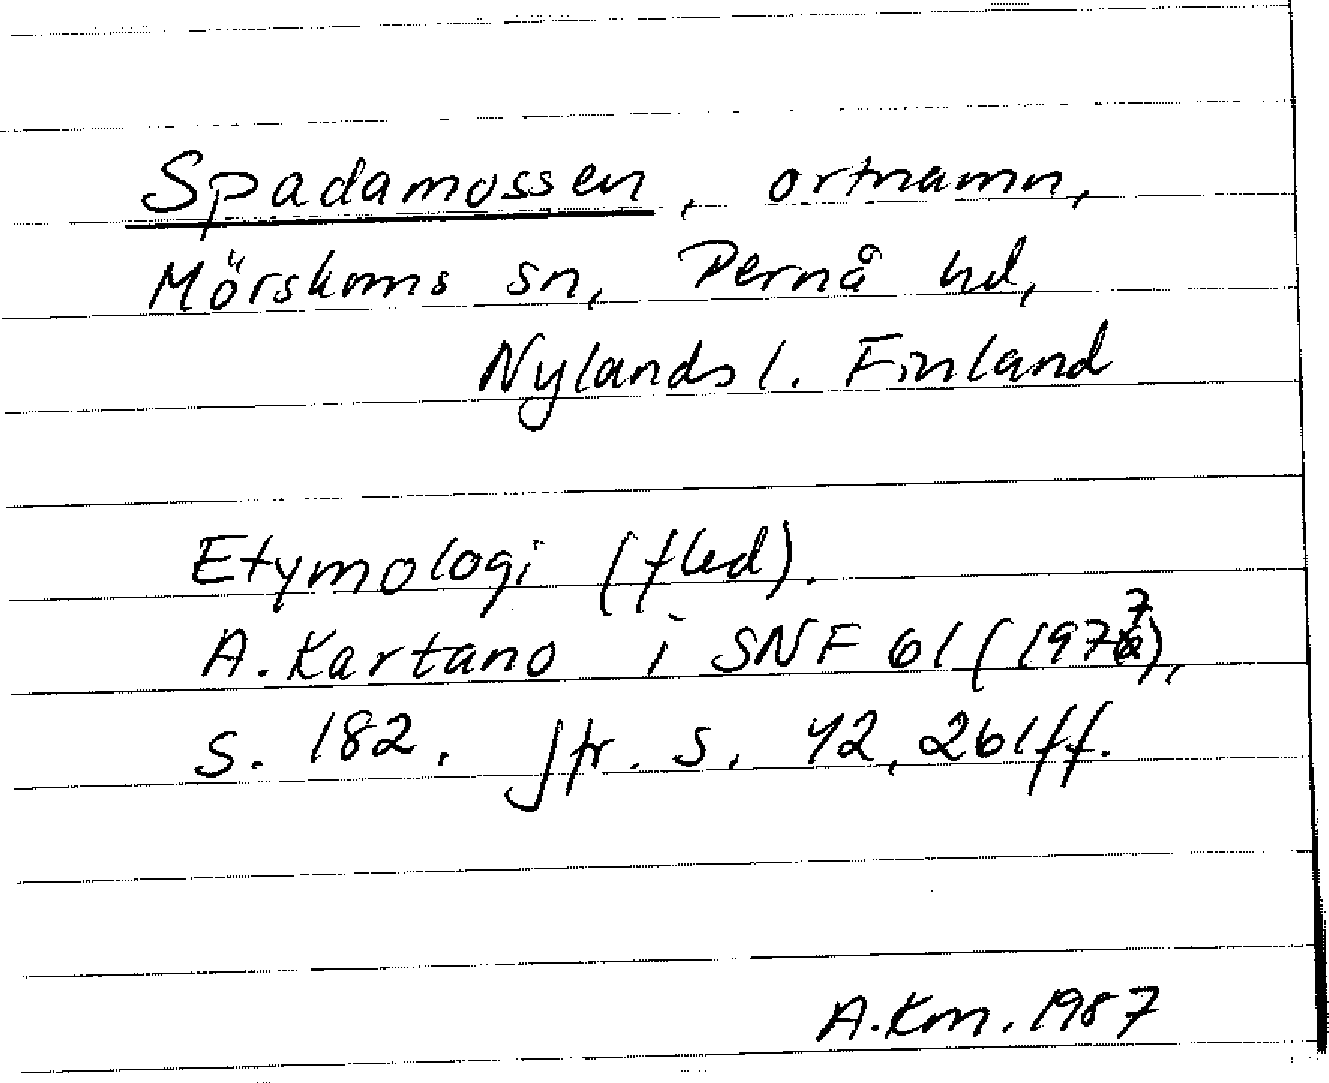 Spadamossen, ortnamn,
Mörskoms sn, Pernå hd,
Nylands l. Finland
Etymologi (fled).
A. Kartano i SNF 61 (1977),
s. 182. Jfr. s. 42, 261ff.
A.Km. 1987